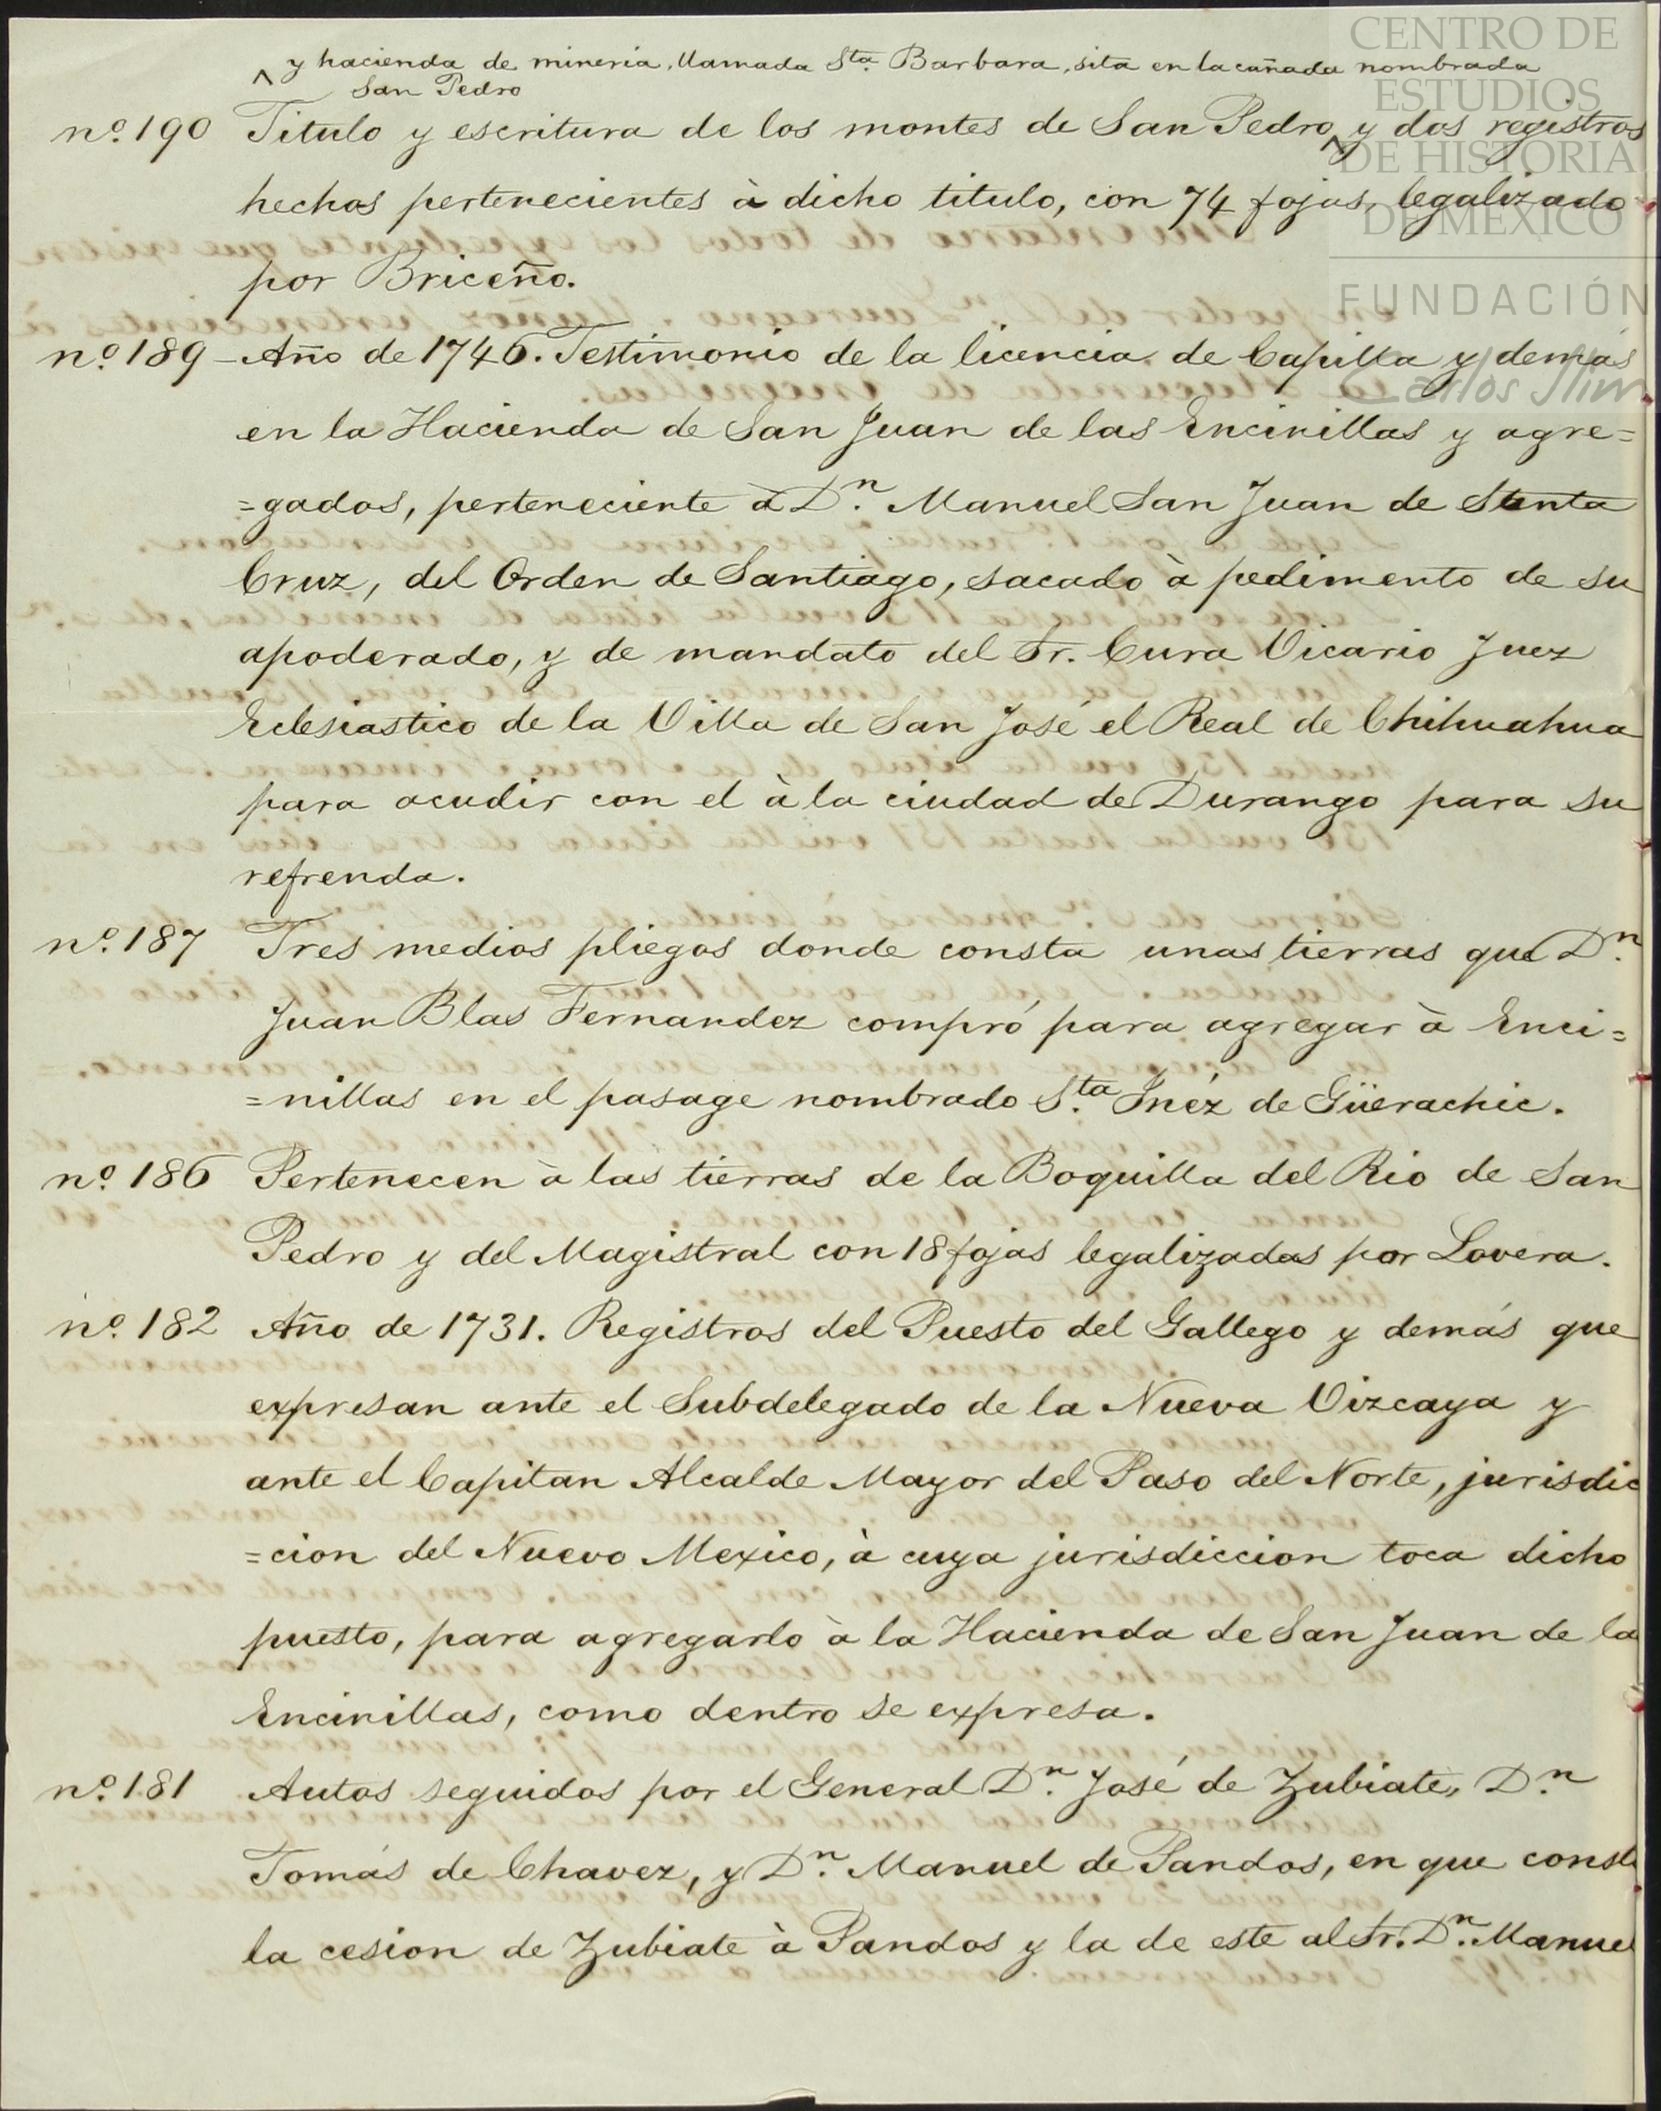 CENTRO DE
ESTUDIOS
DE HISTORIA
DE MEXICO
FUNDACIÓN
Carlos Slim
^ y hacienda de mineria, llamada Sta. Barbara, sita en la cañada nombrada
San Pedro
nº. 190 Titulo y escritura de los montes de San Pedro ^ y dos registros
hechos pertenecientes à dicho titulo, con 74 fojas, legalizado
por Briceño.
nº. 189 – Año de 1746. Testimonio de la licencia de Capilla y demás
en la Hacienda de San Juan de las Encinillas y agre=
=gados, perteneciente à Dn. Manuel San Juan de Santa
Cruz, del Orden de Santiago, sacado à pedimento de su
apoderado, y de mandato del Sr. Cura Vicario Juez
Eclesiastico de la Villa de San José el Real de Chihuahua
para acudir con el à la ciudad de Durango para su
refrenda.
nº. 187 Tres medios pliegos donde consta unas tierras que Dn.
Juan Blas Fernandez compró para agregar à Enci=
=nillas en el pasage nombrado Sta. Inéz de Güerachic.
nº. 186 Pertenecen à las tierras de la Boquilla del Rio de San
Pedro y del Magistral con 18 fojas legalizadas por Lovera.
nº. 182 Año de 1731. Registros del Puesto del Gallego y demás que
expresan ante el Subdelegado de la Nueva Vizcaya y
ante el Capitan Alcalde Mayor del Paso del Norte, jurisdic
=cion del Nuevo Mexico, à cuya jurisdiccion toca dicho
puesto, para agregarlo à la Hacienda de San Juan de la
Encinillas, como dentro se expresa.
nº. 181 Autos seguidos por el General Dn. José de Zubiate, Dn.
Tomás de Chavez, y Dn. Manuel de Pandos, en que consta
la cesion de Zubiate à Pandos y la de este al Sr. Dn. Manuel